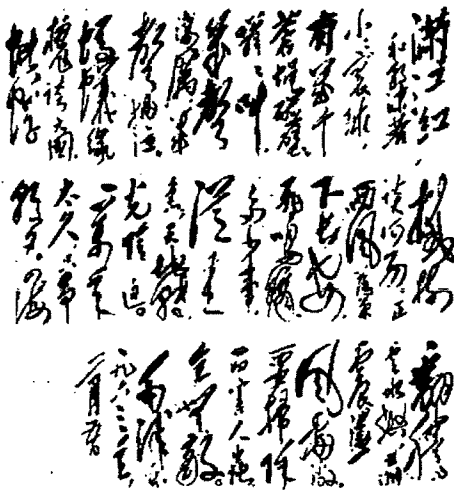 滿江紅
和郭沫若
小小寰球
有幾个
蒼蠅碰壁
嗡嗡叫
幾聲
淒厲幾
聲抽泣
螞蟻緣
槐誇大國
蚍蜉
撼樹
談何易正
西風落葉
下長安
飛鳴鏑
多少事
從來
急天地轉
光陰迫
一萬年
太久只爭
朝夕四海
翻騰
雲水怒五洲
震盪
風雷激
要掃除
一切害人蟲
全無敵
毛澤東
一九六三年
一月九日